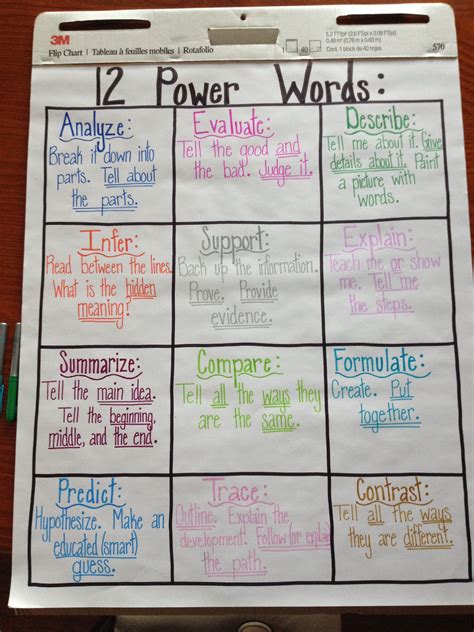 3M
Flip Chart | Tableau à feuilles mobiles | Rotafolio
570
12 Power Words:
Analyze:
Break it down into
parts. Tell about
the parts.
Evaluate:
Tell the good and
the bad. Judge it.
Describe:
Tell me about it. Give
details about it. Paint
a picture with
words.
Infer:
Read between the lines.
What is the hidden
meaning?
Support:
Back up the information.
Prove. Provide
evidence.
Explain:
Teach me or show
me. Tell me
the steps.
Summarize:
Tell the main idea.
Tell the beginning,
middle, and the end.
Compare:
Tell all the ways they
are the same.
Formulate:
Create. Put
together.
Predict:
Hypothesize. Make an
educated (smart)
guess.
Trace:
Outline. Explain the
development! Follow (or explain)
the path.
Contrast:
Tell all the ways
they are different.